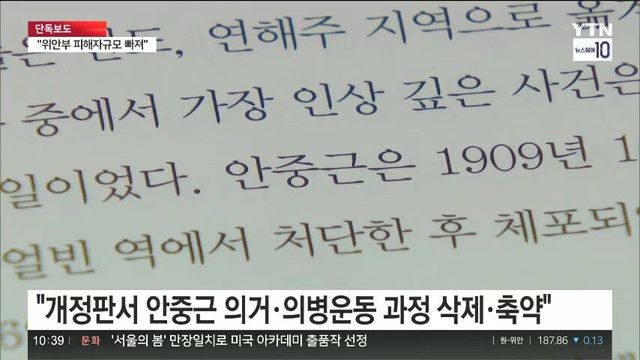 단독보도
"위안부 피해자규모 빠져"
YTN
뉴스퀘어 10
연해주 지역으로
중에서 가장 인상 깊은 사건은
일이었다. 안중근은 1909년 1
얼빈 역에서 처단한 후 체포되
"개정판서 안중근 의거·의병운동 과정 삭제·축약"
10:39 문화 '서울의 봄' 만장일치로 미국 아카데미 출품작 선정 위안(CNH) 187.86 ▼ 0.13